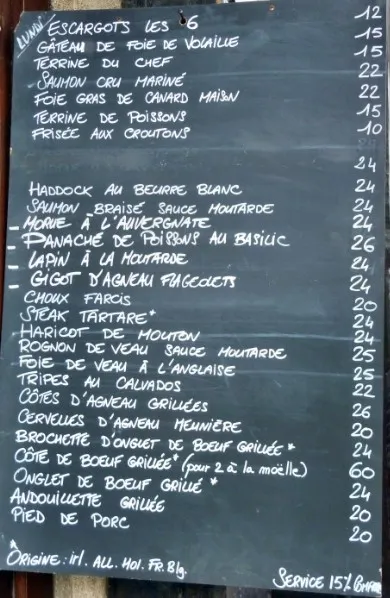 LUNDI
ESCARGOTS LES 6 12
GÂTEAU DE FOIE DE VOLAILLE 15
TERRINE DU CHEF 15
SAUMON CRU MARINÉ 22
FOIE GRAS DE CANARD MAISON 22
TERRINE DE POISSONS 15
FRISÉE AUX CROUTONS 10
24
HADDOCK AU BEURRE BLANC 24
SAUMON BRAISÉ SAUCE MOUTARDE 24
- MORUE À L'AUVERGNATE 24
- PANACHÉ DE POISSONS AU BASILIC 26
- LAPIN À LA MOUTARDE 24
- GIGOT D'AGNEAU FLAGEOLETS 24
CHOUX FARCIS 20
STEAK TARTARE* 24
HARICOT DE MOUTON 24
ROGNON DE VEAU SAUCE MOUTARDE 25
FOIE DE VEAU À L'ANGLAISE 25
TRIPES AU CALVADOS 22
CÔTES D'AGNEAU GRILLÉES 26
CERVELLES D'AGNEAU MEUNIÈRE 20
BROCHETTE D'ONGLET DE BOEUF GRILLÉE * 24
CÔTE DE BOEUF GRILLÉE* (pour 2 à la moëlle) 60
ONGLET DE BOEUF GRILLÉ * 24
ANDOUILLETTE GRILLÉE 20
PIED DE PORC 20
*ORIGINE : irl. ALL. Hol. FR. Blg.
SERVICE 15%